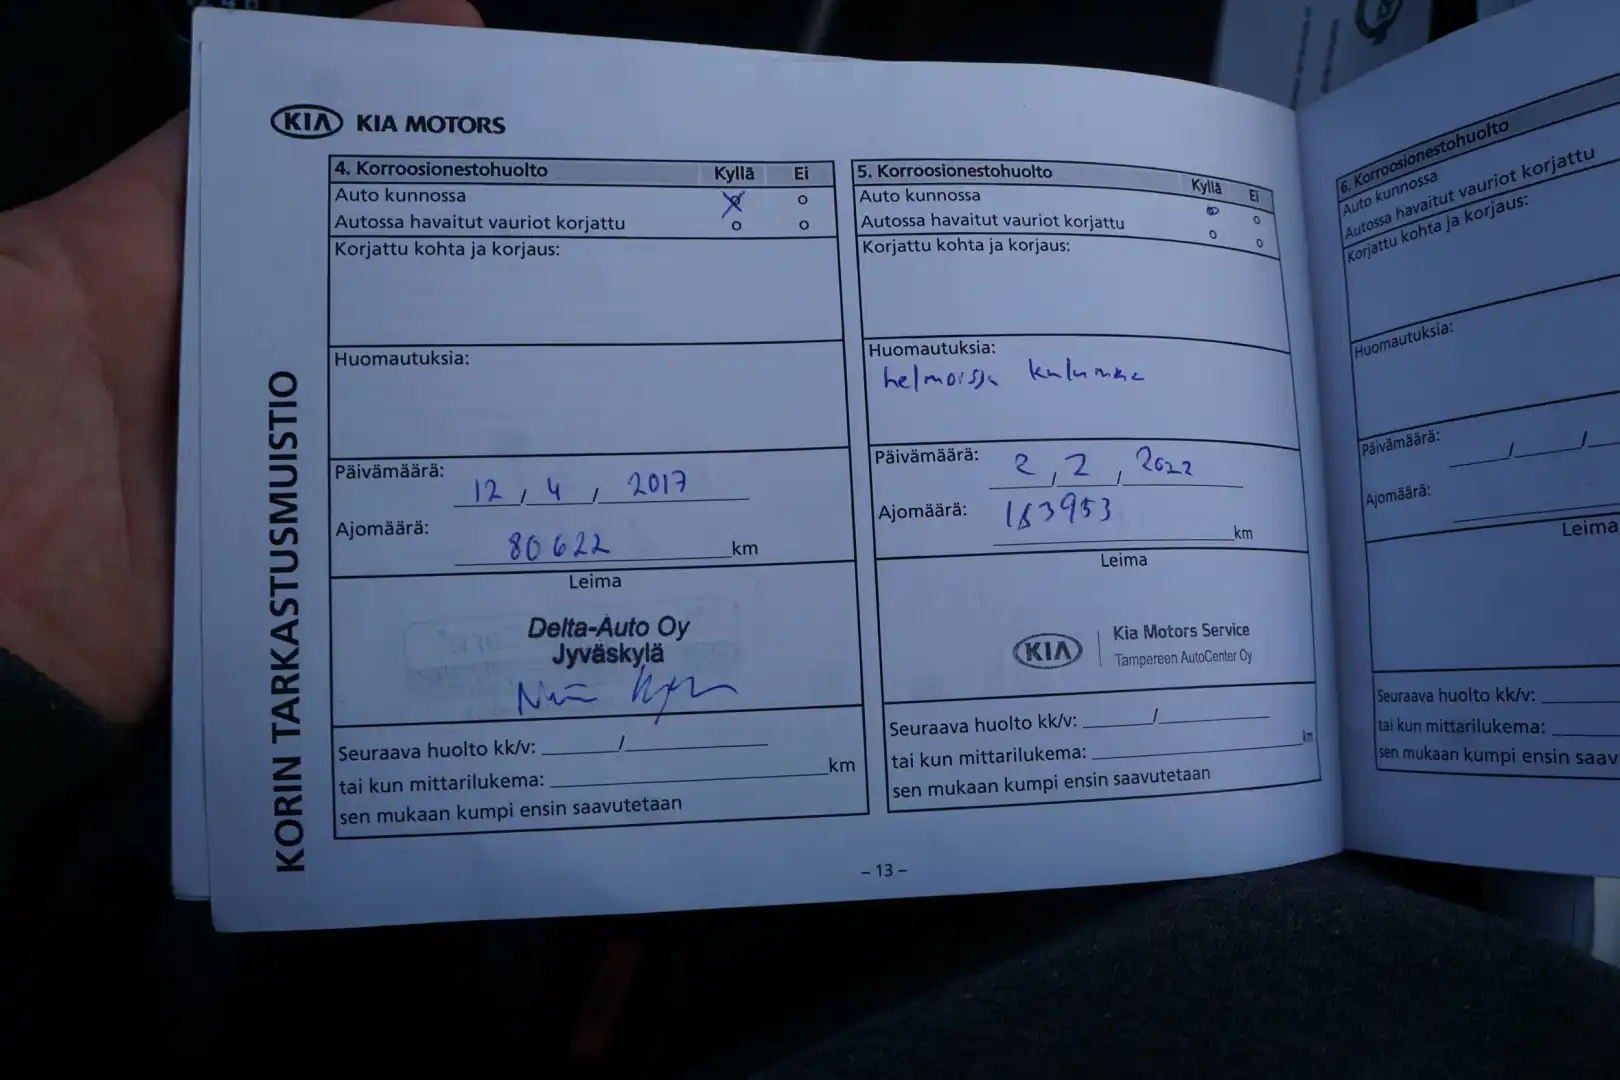 KIA KIA MOTORS
KORIN TARKASTUSMUISTIO
4. Korroosionestohuolto Kyllä Ei
Auto kunnossa
Autossa havaitut vauriot korjattu
Korjattu kohta ja korjaus:
Huomautuksia:
Päivämäärä: 12 / 4 / 2017
Ajomäärä: 80622 km
Leima
Delta-Auto Oy
Jyväskylä
Seuraava huolto kk/v: /
tai kun mittarilukema: km
sen mukaan kumpi ensin saavutetaan
5. Korroosionestohuolto Kyllä Ei
Auto kunnossa
Autossa havaitut vauriot korjattu
Korjattu kohta ja korjaus:
Huomautuksia:
helmoissa kulumaa
Päivämäärä: 2 / 2 / 2022
Ajomäärä: 153953 km
Leima
KIA Kia Motors Service
Tampereen AutoCenter Oy
Seuraava huolto kk/v: /
tai kun mittarilukema: km
sen mukaan kumpi ensin saavutetaan
– 13 –
6. Korroosionestohuolto
Auto kunnossa
Autossa havaitut vauriot korjattu
Korjattu kohta ja korjaus:
Huomautuksia:
Päivämäärä: / /
Ajomäärä:
Leima
Seuraava huolto kk/v:
tai kun mittarilukema:
sen mukaan kumpi ensin saav